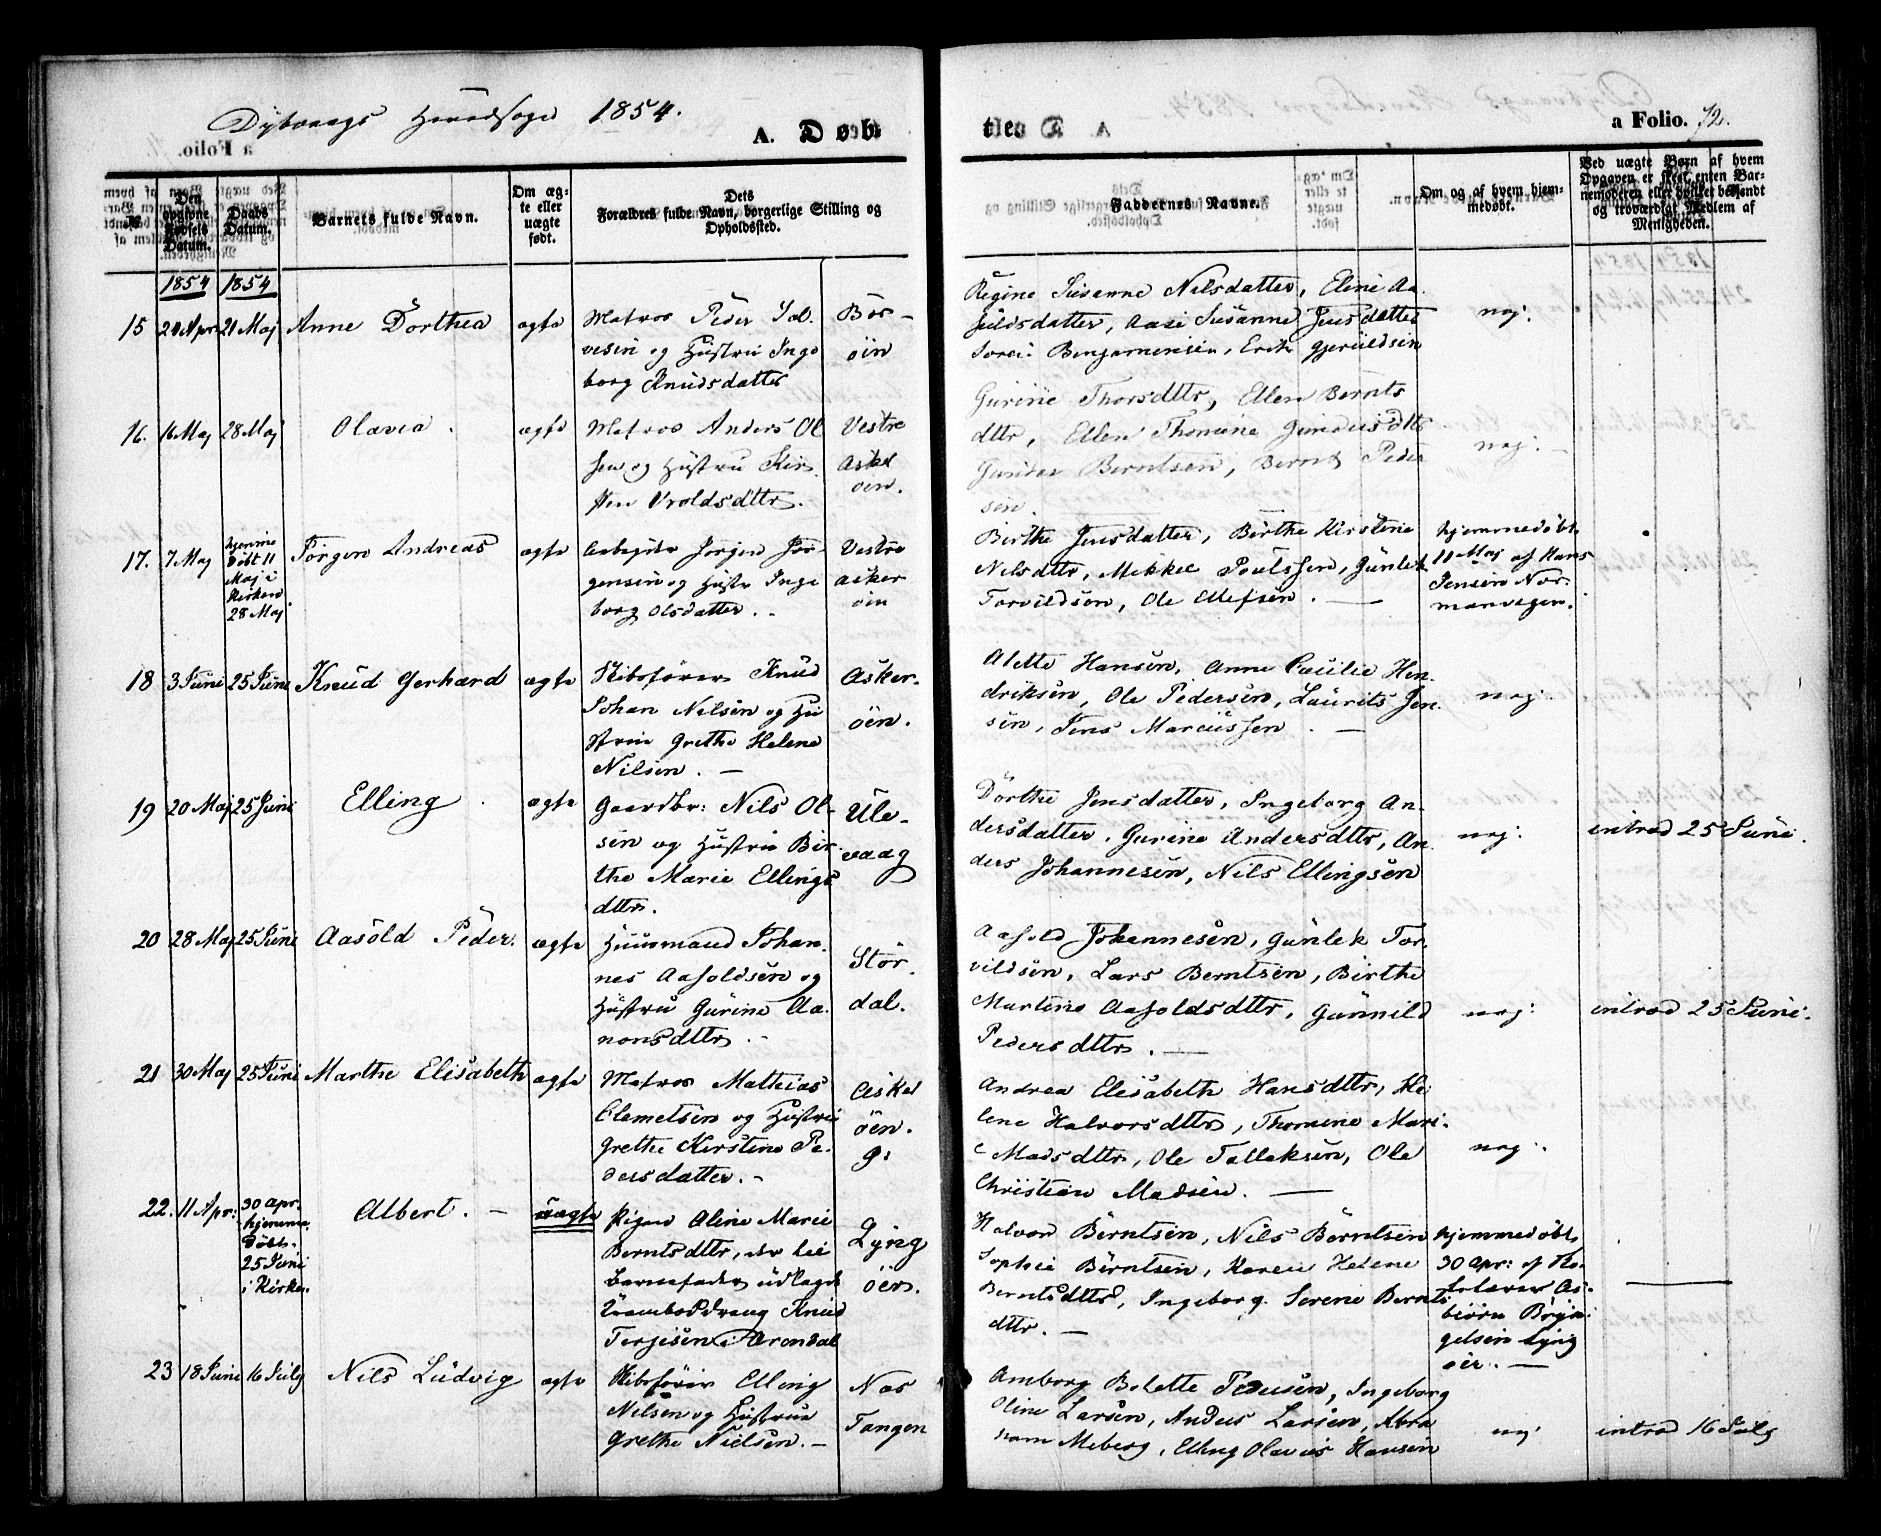 Dybvaags Hovedsogn 1854.
A. Døb-
te.
a Folio. 72.
No.
Den opgivne Fødsels Datum.
Daabs Datum.
Barnets fulde Navn.
Om ægte eller uægte født.
Dets Forældres fulde Navn, borgerlige Stilling og Opholdssted.
Faddernes Navne.
Om og af hvem hjemmedøbt.
Ved uægte Børn af hvem Opgaven er skeet, enten Barnemoderen eller hvilket bekjendt og troværdigt Medlem af Menigheden.
1854 1854
15 21 Maj Anne Dorthea ægte
Matros Peder Sal-
vesen og Hustru Inge
borg Knudsdatter
Bor-
øen
Regine Susanne Nilsdatter, Eline Aa-
fieldsdatter, Aase Susanne Jensdatter
Soren Benjaminsen, Erik Gjeruldsen
nej.
16. 16 Maj 28 Maj Olavia. ægte
Matros Anders Ol
sen og Hustru Kir
sten Vroldsdttr.
Vestre
Asker
øen.
Gurine Thorsdttr, Ellen Bernts
dttr, Ellen Thomine Gundersdttr
Gunder Berntsen, Bernt Peder
sen.
nej.
17. 7 Maj
hjemme
døbt 11
Maj i
Kirken
28 Maj
Jørgen Andreas ægte
Arbejder Jørgen Jør-
gensen og Hustr Inge
borg Olsdatter.
Vestre
Asker
øen
Birthe Jensdatter, Birthe Kirstine
Nilsdttr, Mikkel Poulssen, Gunlek
Torvildsen, Ole Ellefsen. —
hjemmedøbt
11 Maj af Hans
Jensen Nor-
manvigen.
18 3 Juni 25 Juni Knud Gerhard ægte
Skibsfører Knud
Johan Nelsen og Hu
stru Grethe Helene
Nilsen. —
Asker-
øen.
Alette Hansen, Anne Cecilie Hen-
driksen, Ole Pedersen, Laurits Jen-
sen, Jens Marcussen. —
nej.
19 20 Maj 25 Juni Elling. ægte
Gaardbr: Nils Ol-
sen og Hustru Bir-
the Marie Ellings
dttr.
Ule-
vaag
Dorthe Jensdatter, Ingeborg An-
dersdatter, Gurine Andersdttr, An-
ders Johannesen, Nils Ellingsen
nej.
introd 25 Juni.
20 28 Maj 25 Juni Aasold Peder. ægte
Huusmand Johan-
nes Aasoldsen og
Hustru Gurine Aa-
nonsdttr.
Stor-
dal.
Aasold Johannesen, Gunlek Tor-
vildsen, Lars Berntsen, Birthe
Martine Aasoldsdttr, Gunnild
Pedersdttr. —
nej:
introd 25 Juni.
21 30 Maj 25 Juni Marthe Elisabeth ægte
Matros Mathias
Clemetsen og Hustru
Grethe Kirstine Pe-
dersdatter. -
Asker
øen.
Andrea Elisabeth Hansdttr, He-
lene Halvorsdttr, Thomine Mari-
e Madsdttr, Ole Telleksen, Ole
Christian Madsen. —
nej.
22. 11 Apr:
30 Apr.
hjemme
døbt.
25 Juni
i Kirken
Albert. — uægte
Pigen Aline Marie
Berntsdttr, der til
Barnefader udlagde
Knud
Terjesen i Arendal
Lyng
øer.
Halvor Berntsen, Nils Berntsen
Sophie Berntsen, Karen Helene
Berntsdttr, Ingeborg Serene Bernts
dttr. —
hjemmedøbt
30 Apr: af
As-
biørn Bryn-
gelsen Lyng
øer. —
23 18 Juni 16 July Nils Ludvig ægte
Skibsfører Elling
Nilsen og Hustrue
Grethe Nielsen. —
Næs
Tangen
Amborg Bolette Pedersen, Ingeborg
Oline Larsen, Anders Larsen, Abra
ham Meberg, Elling Olavus Hansen
nej
introd 16 July